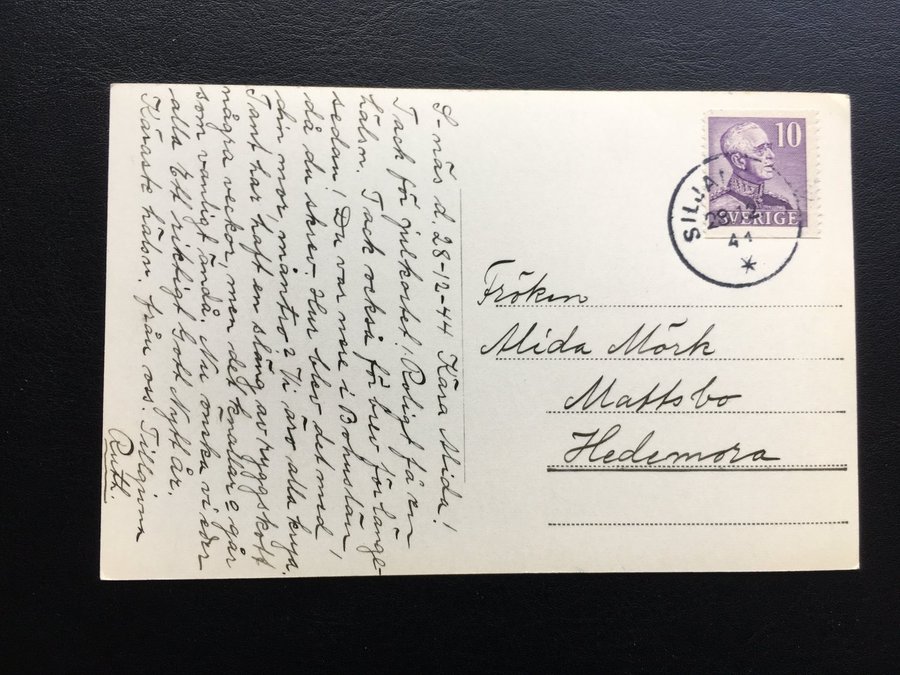 S-näs d. 28-12-44 Kära Alida!
Tack för julkortet! Roligt få en
hälsn. Tack också för brev för länge-
sedan! Du var mse i Bohuslän,
då du skrev. Hur blev det med
din mor, måntro? Vi äro alla krya.
Tant har haft en släng av ryggskott
några veckor, men det knallar o går
som vanligt ändå. Nu önska vi eder
alla Ett riktigt Gott Nytt År.
Käraste hälsn. från oss. Tillgivna
Ruth.
10
SVERIGE
SILJA
28 12
44
Fröken
Alida Mörk
Mattsbo
Hedemora